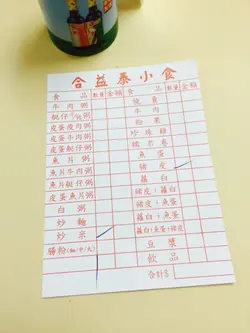 合益泰小食
食品 數量 金額 食品 數量 金額
牛肉粥
艇仔粥
皮蛋瘦肉粥
皮蛋牛肉粥
皮蛋艇仔粥
魚片粥
魚片牛肉粥
魚片艇仔粥
皮蛋魚片粥
白粥
炒麵
炒米
腸粉(細/中/大)
燒賣
牛肉
粉果
珍珠雞
魚蛋
豬皮
蘿蔔
豬皮蘿蔔
豬皮魚蛋
蘿蔔魚蛋
蘿蔔魚蛋豬皮
豆漿
飲品
合計$